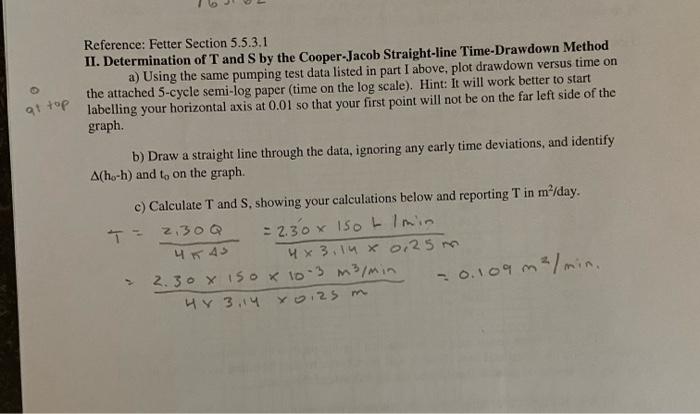 Reference: Fetter Section 5.5.3.1
II. Determination of T and S by the Cooper-Jacob Straight-line Time-Drawdown Method
a) Using the same pumping test data listed in part I above, plot drawdown versus time on
the attached 5-cycle semi-log paper (time on the log scale). Hint: It will work better to start
labelling your horizontal axis at 0.01 so that your first point will not be on the far left side of the
graph.
0
at top
b) Draw a straight line through the data, ignoring any early time deviations, and identify
Δ(h₀-h) and t₀ on the graph.
c) Calculate T and S, showing your calculations below and reporting T in m²/day.
T = 2.30 Q / 4 π Δs = 2.30 x 150 L / min / 4 x 3.14 x 0.25 m
= 2.30 x 150 x 10⁻³ m³/min / 4 x 3.14 x 0.25 m = 0.109 m²/min.